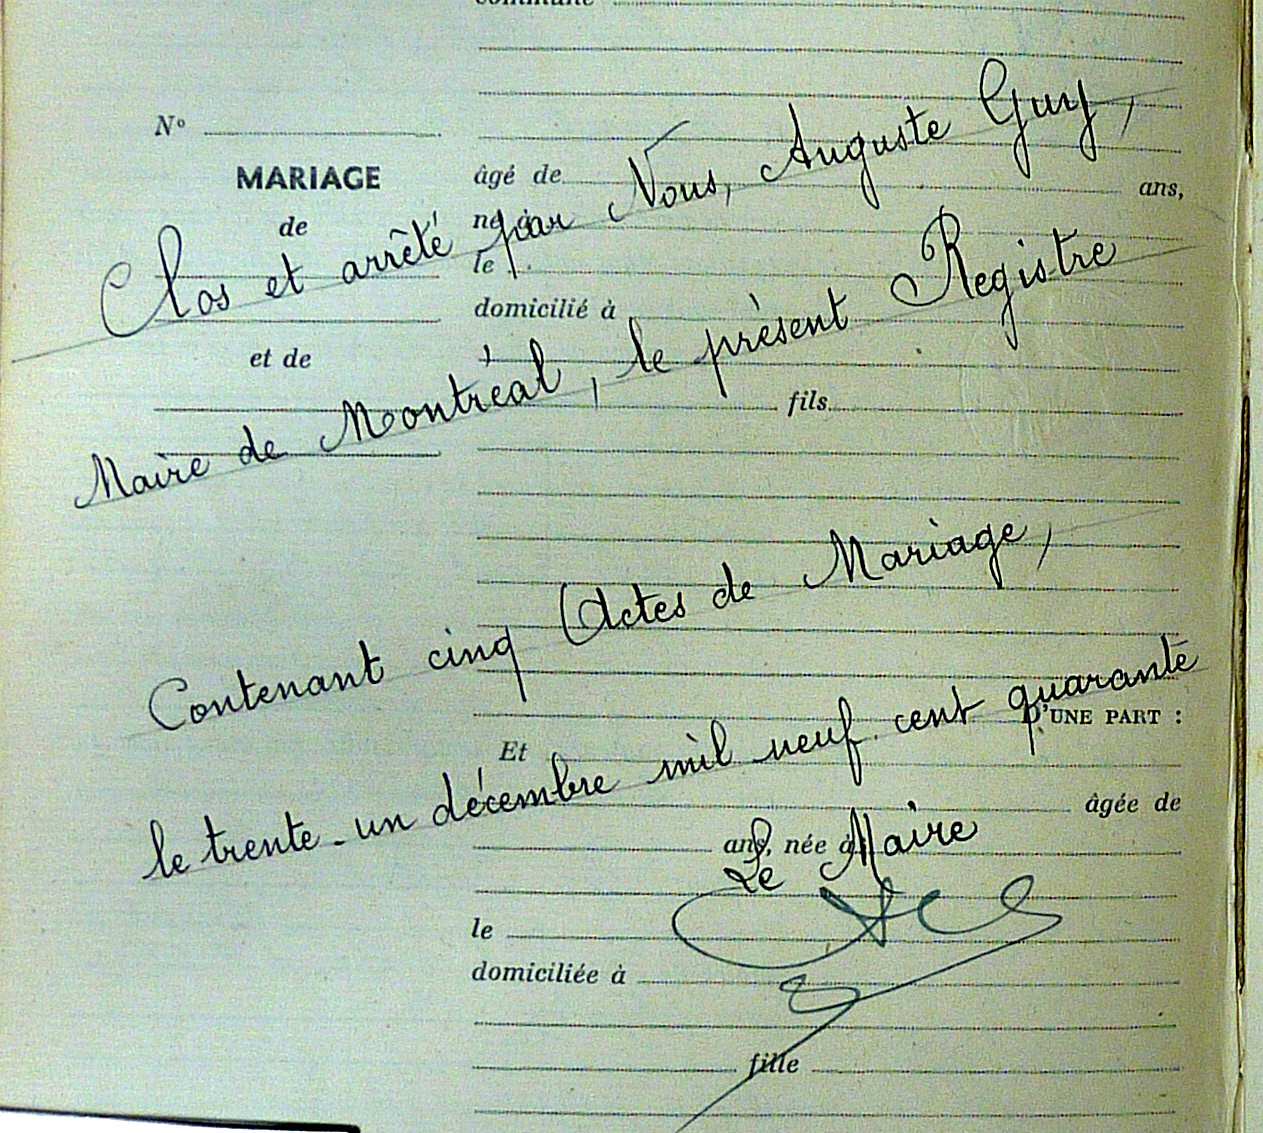 commune
N°
MARIAGE
de
et de
âgé de ans,
né à
le
domicilié à
fils
D'UNE PART :
Et
âgée de
ans, née à
le
domiciliée à
fille
Clos et arrêté par Nous, Auguste Guy,
Maire de Montréal, le présent Registre
Contenant cinq Actes de Mariage,
le trente-un décembre mil neuf cent quarante
Le Maire